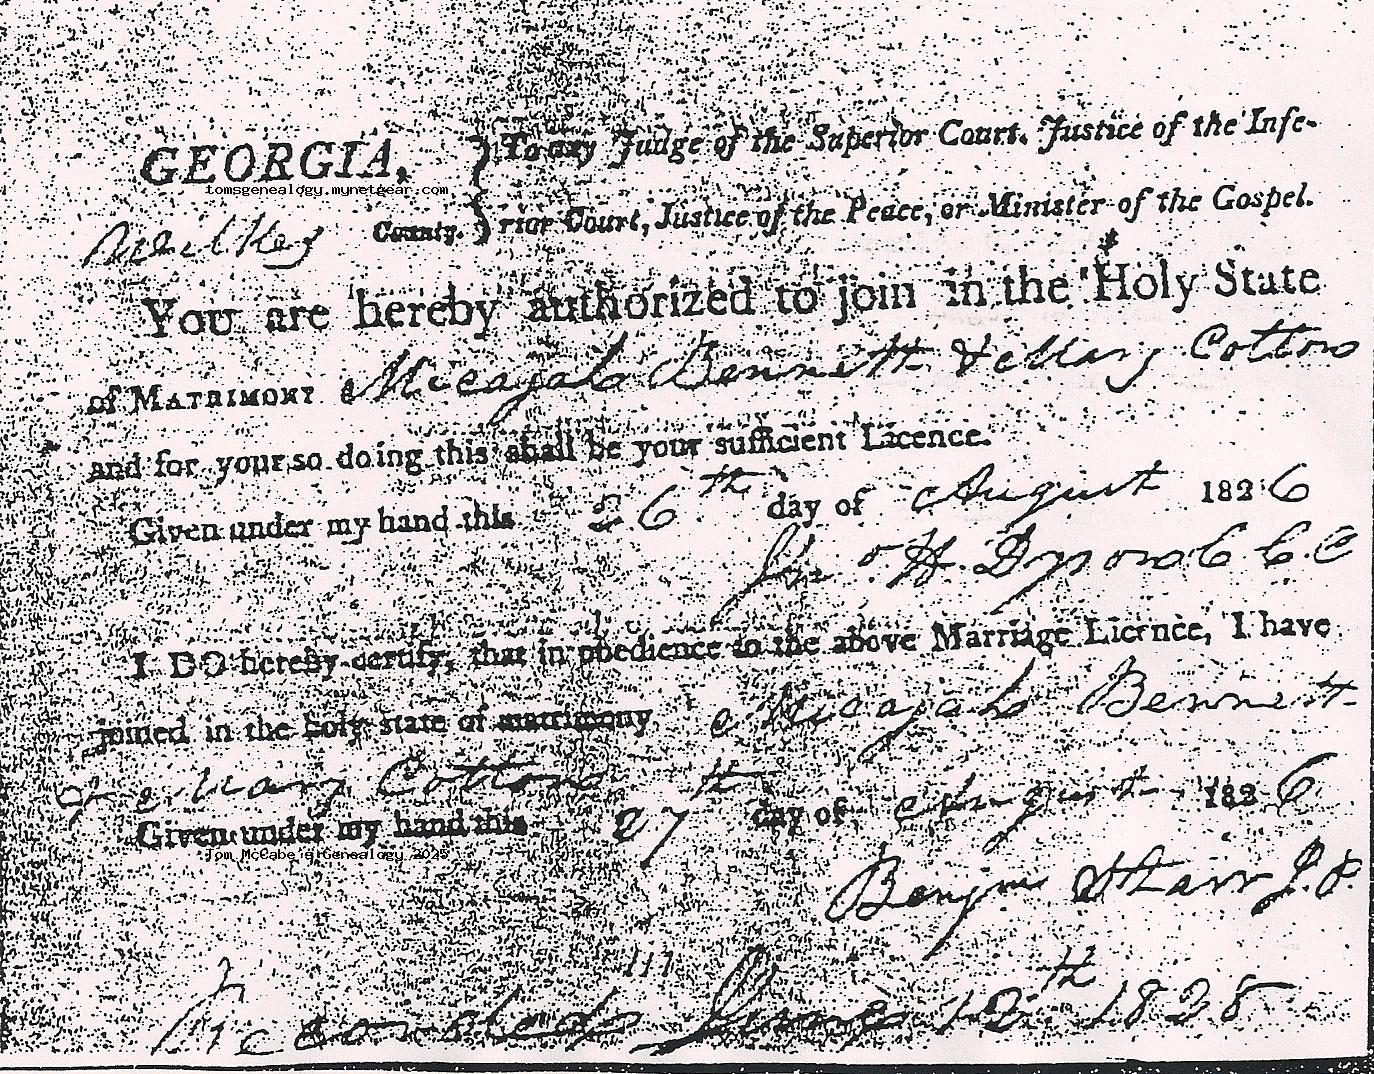 GEORGIA, } To any Judge of the Superior Court, Justice of the Infe-
tomsgenealogy.mynetgear.com
Wilkes County. } rior Court, Justice of the Peace, or Minister of the Gospel.
You are hereby authorized to join in the Holy State
of MATRIMONY Micajah Bennett & Mary Cotton
and for your so doing this shall be your sufficient Licence.
Given under my hand this 26th day of August 1826
Jno H. Dyson C C O
I DO hereby certify, that in obedience to the above Marriage Licence, I have
joined in the holy state of matrimony Micajah Bennett
& Mary Cotton
Given under my hand this 27th day of August 1826
Tom McCabe's Genealogy 2025
Benjm Starr J. P.
117
Recorded June 12th 1828